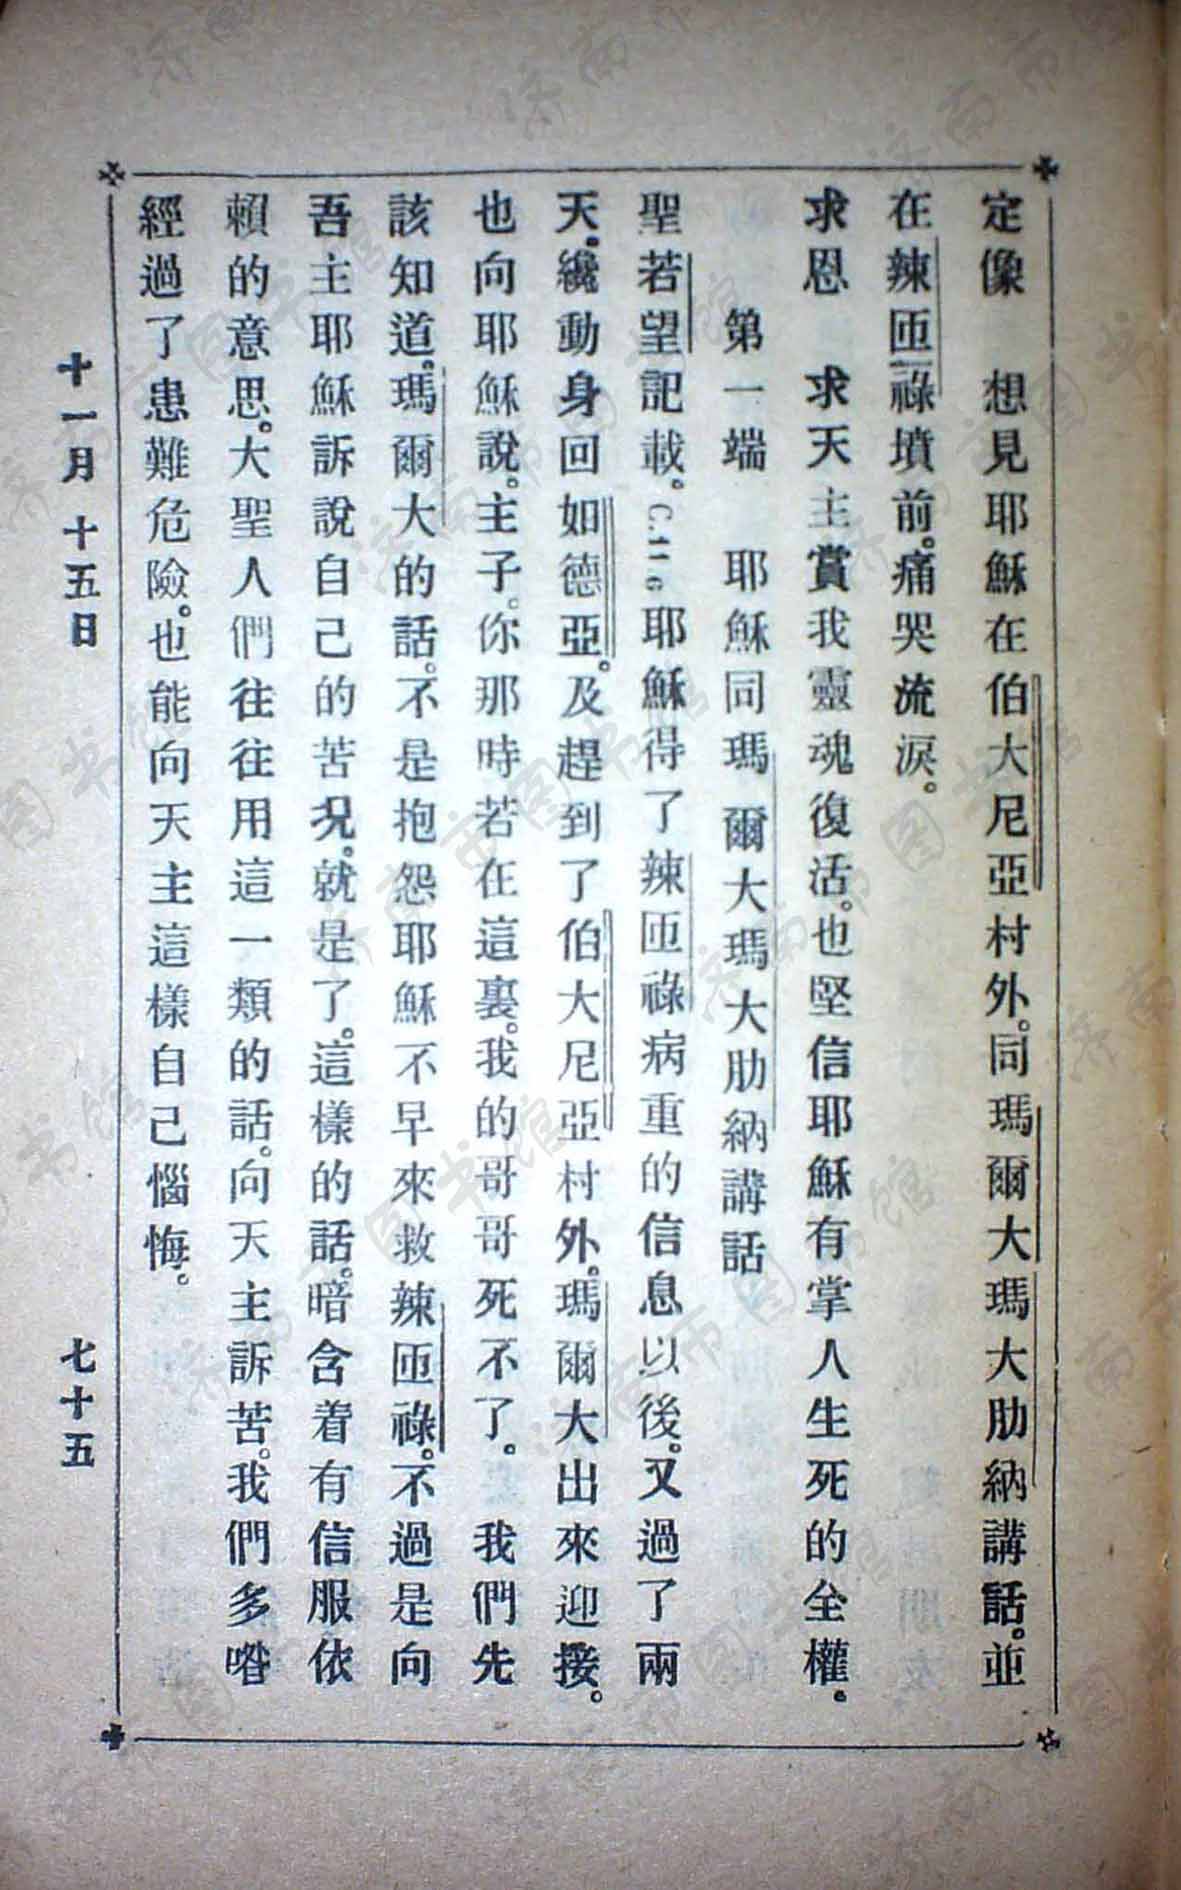 定像　想見耶穌在伯大尼亞村外。同瑪爾大瑪大肋納講話。並
在辣匝祿墳前。痛哭流淚。
求恩　求天主賞我靈魂復活。也堅信耶穌有掌人生死的全權。
第一端　耶穌同瑪爾大瑪大肋納講話
聖若望記載。C.11。耶穌得了辣匝祿病重的信息以後。又過了兩
天。纔動身回如德亞。及趕到了伯大尼亞村外。瑪爾大出來迎接。
也向耶穌說。主子。你那時若在這裏。我的哥哥死不了。　我們先
該知道。瑪爾大的話。不是抱怨耶穌不早來救辣匝祿。不過是向
吾主耶穌訴說自己的苦況。就是了。這樣的話。暗含着有信服依
賴的意思。大聖人們往往用這一類的話。向天主訴苦。我們多喒
經過了患難危險。也能向天主這樣自己惱悔。
十一月　十五日　七十五
济南市图书馆